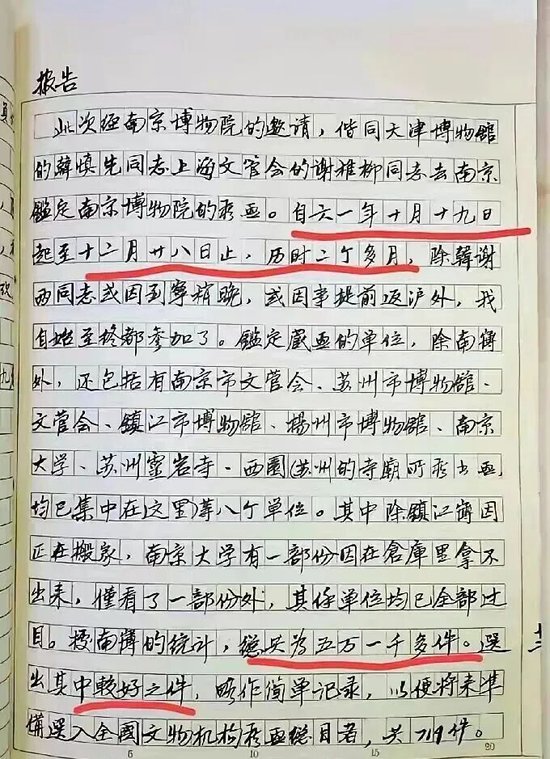 报告
此次经南京博物院的邀请，偕同天津博物館
的韓慎先同志上海文管会的谢稚柳同志去南京
鑑定南京博物院的秀画。自六一年十月十九日
起至十二月廿八日止，历时二个多月，除韓谢
两同志或因到寧稍晚，或因事提前返沪外，我
自始至终都参加了。鑑定蔵画的单位，除南博
外，还包括有南京市文管会、苏州市博物館、
文管会、鎮江市博物館、揚州市博物館、南京
大学、苏州靈岩寺、西園(苏州的寺廟所秀书画，
均已集中在这里)等八个单位。其中除鎮江
因
正在搬家，南京大学有一部份因在倉庫里拿不
出来，僅看了一部份外，其任单位均已全部过
目。據南博的统计，總共为五万一千多件。選
出其中較好之件，略作简单记录，以便将来準
備選入全國文物机构秀画總目者，共719件。
十二
5
10
15
20